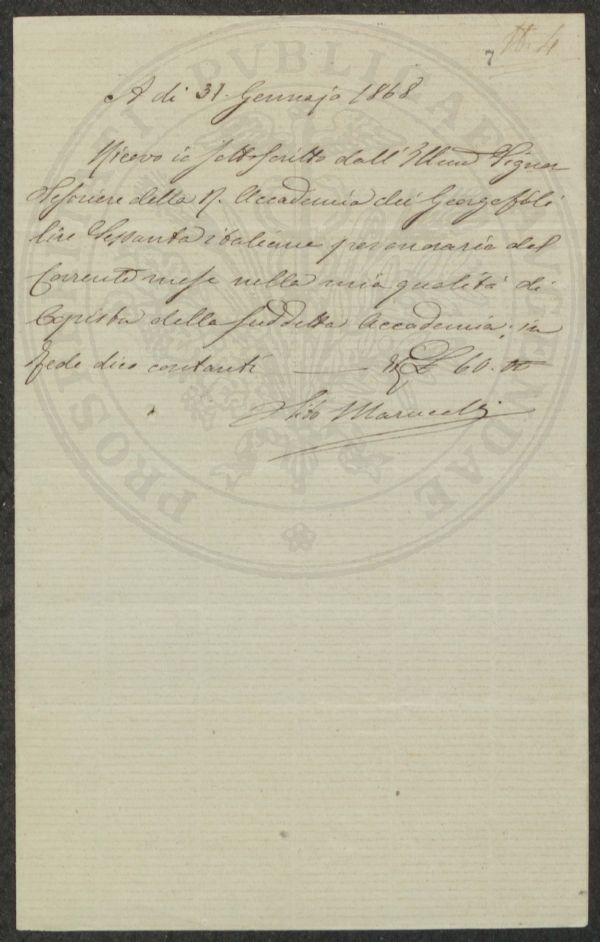 7 N. 4
A di 31 Gennajo 1868
Ricevo io sottoscritto dall' Illmo Signor
Tesoriere della R. Accademia dei Georgofili
lire Sessanta italiane per onorario del
Corrente mese nella mia qualità di
Copista della suddetta Accademia; in
fede dico contanti — £ 60.00
Marucelli
PROSPERITATI PVBLICAE AVGENDAE